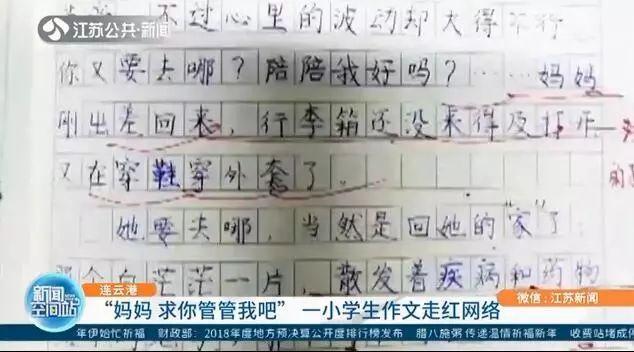 江苏公共·新闻
不过心里的波动却大得不行
你又要去哪？陪陪我好吗？……妈妈
刚出差回来，行李箱还没来得及打开
又在穿鞋穿外套了。
她要去哪，当然是回她的“家”了
白茫茫一片，散发着疾病和药物
连云港
新闻空间站
微信：江苏新闻
“妈妈 求你管管我吧” 一小学生作文走红网络
年伊始忙祈福 财政部：2018年度地方预决算公开度排行榜发布 腊八施粥 传递温情祈福新年 收费站堵成停